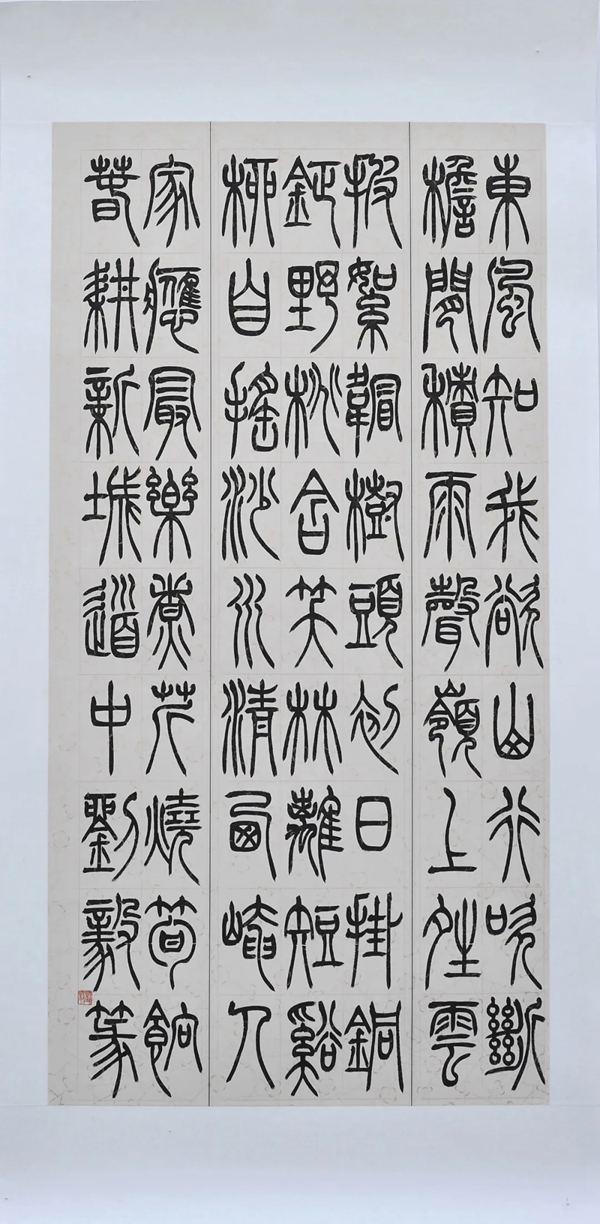 東風知我欲山行吹斷
檐間積雨聲嶺上晴雲
披絮帽樹頭初日掛銅
鉦野桃含笑竹籬短谿
柳自搖沙水清西崦人
家應最樂煮芹燒筍餉
春耕新城道中劉毅篆